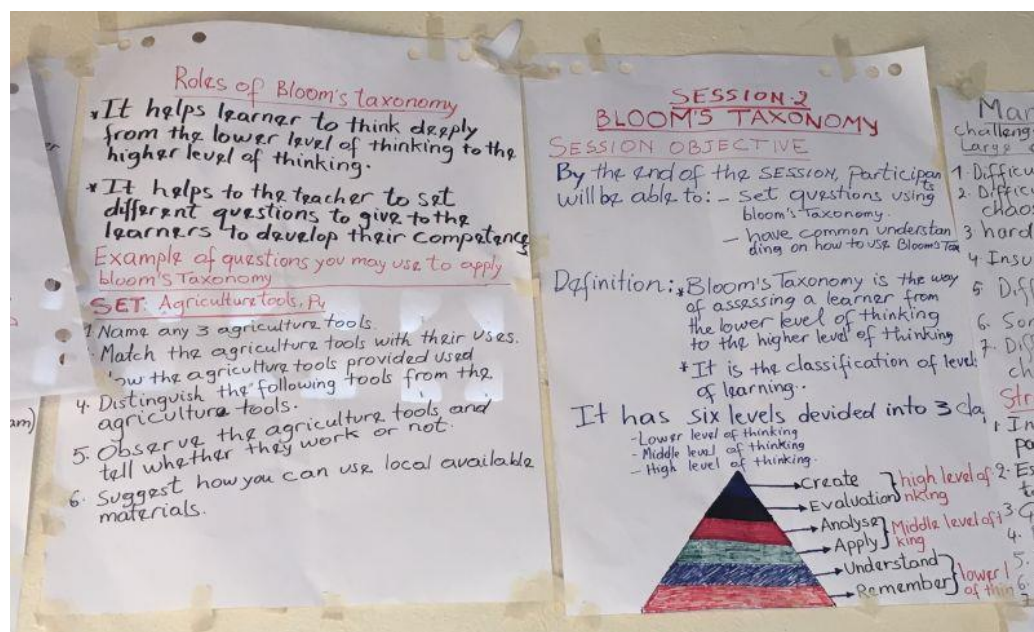 Roles of Bloom's taxonomy
* It helps learner to think deeply
from the lower level of thinking to the
higher level of thinking.
* It helps to the teacher to set
different questions to give to the
learners to develop their competence
Example of questions you may use to apply
bloom's Taxonomy
SET: Agriculture tools, P4
1 Name any 3 agriculture tools.
Match the agriculture tools with their uses.
how the agriculture tools provided used
4. Distinguish the following tools from the
agriculture tools.
5. Observe the agriculture tools and
tell whether they work or not.
6. Suggest how you can use local available
materials.
am)
SESSION-2
BLOOM'S TAXONOMY
SESSION OBJECTIVE
By the end of the SESSION, Participan
ts
will be able to: - Set questions using
bloom's Taxonomy.
- have common understan
ding on how to use Bloom's Tax
Definition: * Bloom's Taxonomy is the way
of assessing a learner from
the lower level of thinking
to the higher level of thinking
* It is the classification of level
of learning..
It has six levels devided into 3 cla
- Lower level of thinking
- Middle level of thinking
- High level of thinking.
Create
Evaluation
high level of
nking
Analyse
Apply
Middle level of t
king
Understand
Remember
lower l
of thin
Mar
challeng
Large
1. Difficu
2. Diffic
chao
3 hard
4 Insu
5 Diff
6. Som
7. Diff
ch
Str
1 In
pa
2. Es
t
3 G
4.
5.
6
7